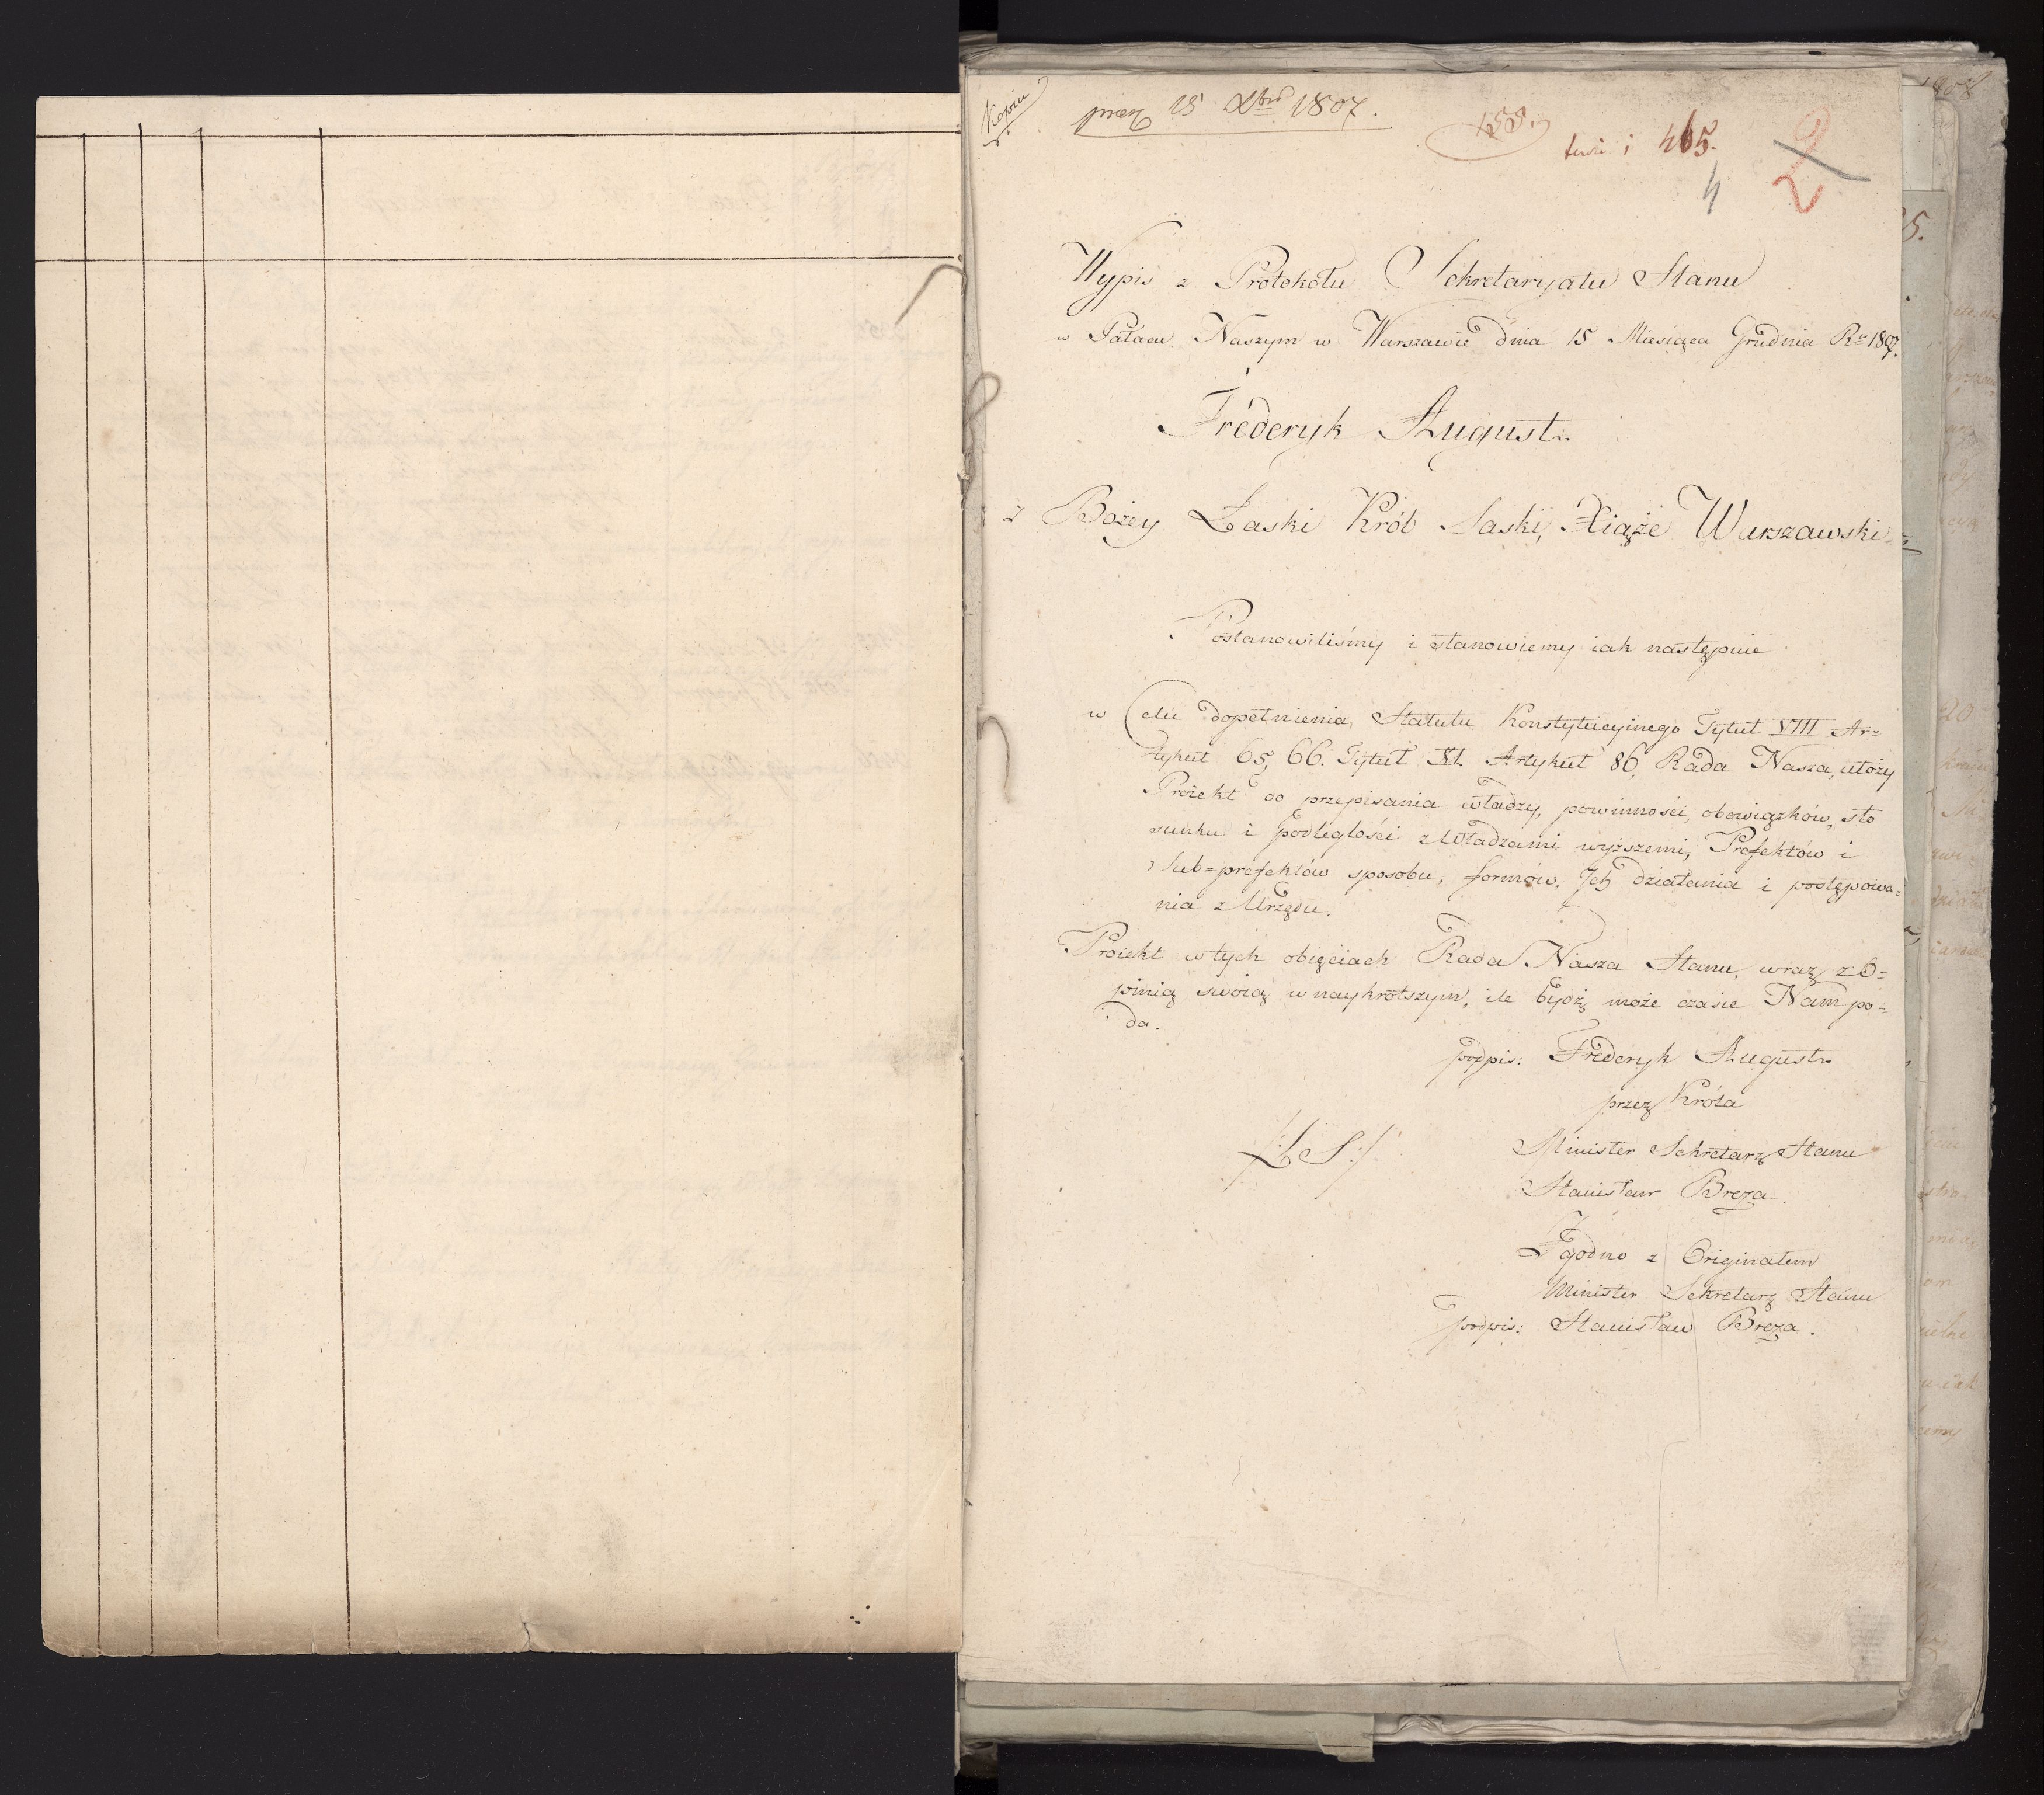 Kopia
præs 15 Xbris 1807.
458.
465.
2
4
Wypis z Protokołu Sekretaryatu Stanu
w Pałacu Naszym w Warszawie dnia 15 Miesiąca Grudnia Rº 1807.
Fréderyk August.
z Bożey Łaski Król Saski, Xiąże Warszawski
Postanowiliśmy i stanowiemy iak następuie
w Celu dopełnienia Statutu Konstytucyinego Tytuł VIII Ar=
tykuł 65, 66. Tytuł XI. Artykuł 86, Rada Nasza, ułoży
Proiekt do przepisania władzy, powinności, obowiązków, sto
sunku i podległości z Władzami wyższemi, Prefektów i
Sub=prefektów sposobu, formów, Jch działania i postępowa=
nia z Urzędu.
Proiekt w tych obięciach Rada Nasza Stanu, wraz z O=
pinią swoią w naykrótszym, ile bydź może czasie Nam po=
da.
podpis: Fréderyk August
przez Króla
/:L S:/
Minister Sekretarz Stanu
Stanisław Breza.
Zgodno z Originałem
Minister Sekretarz Stanu
podpis: Stanisław Breza.